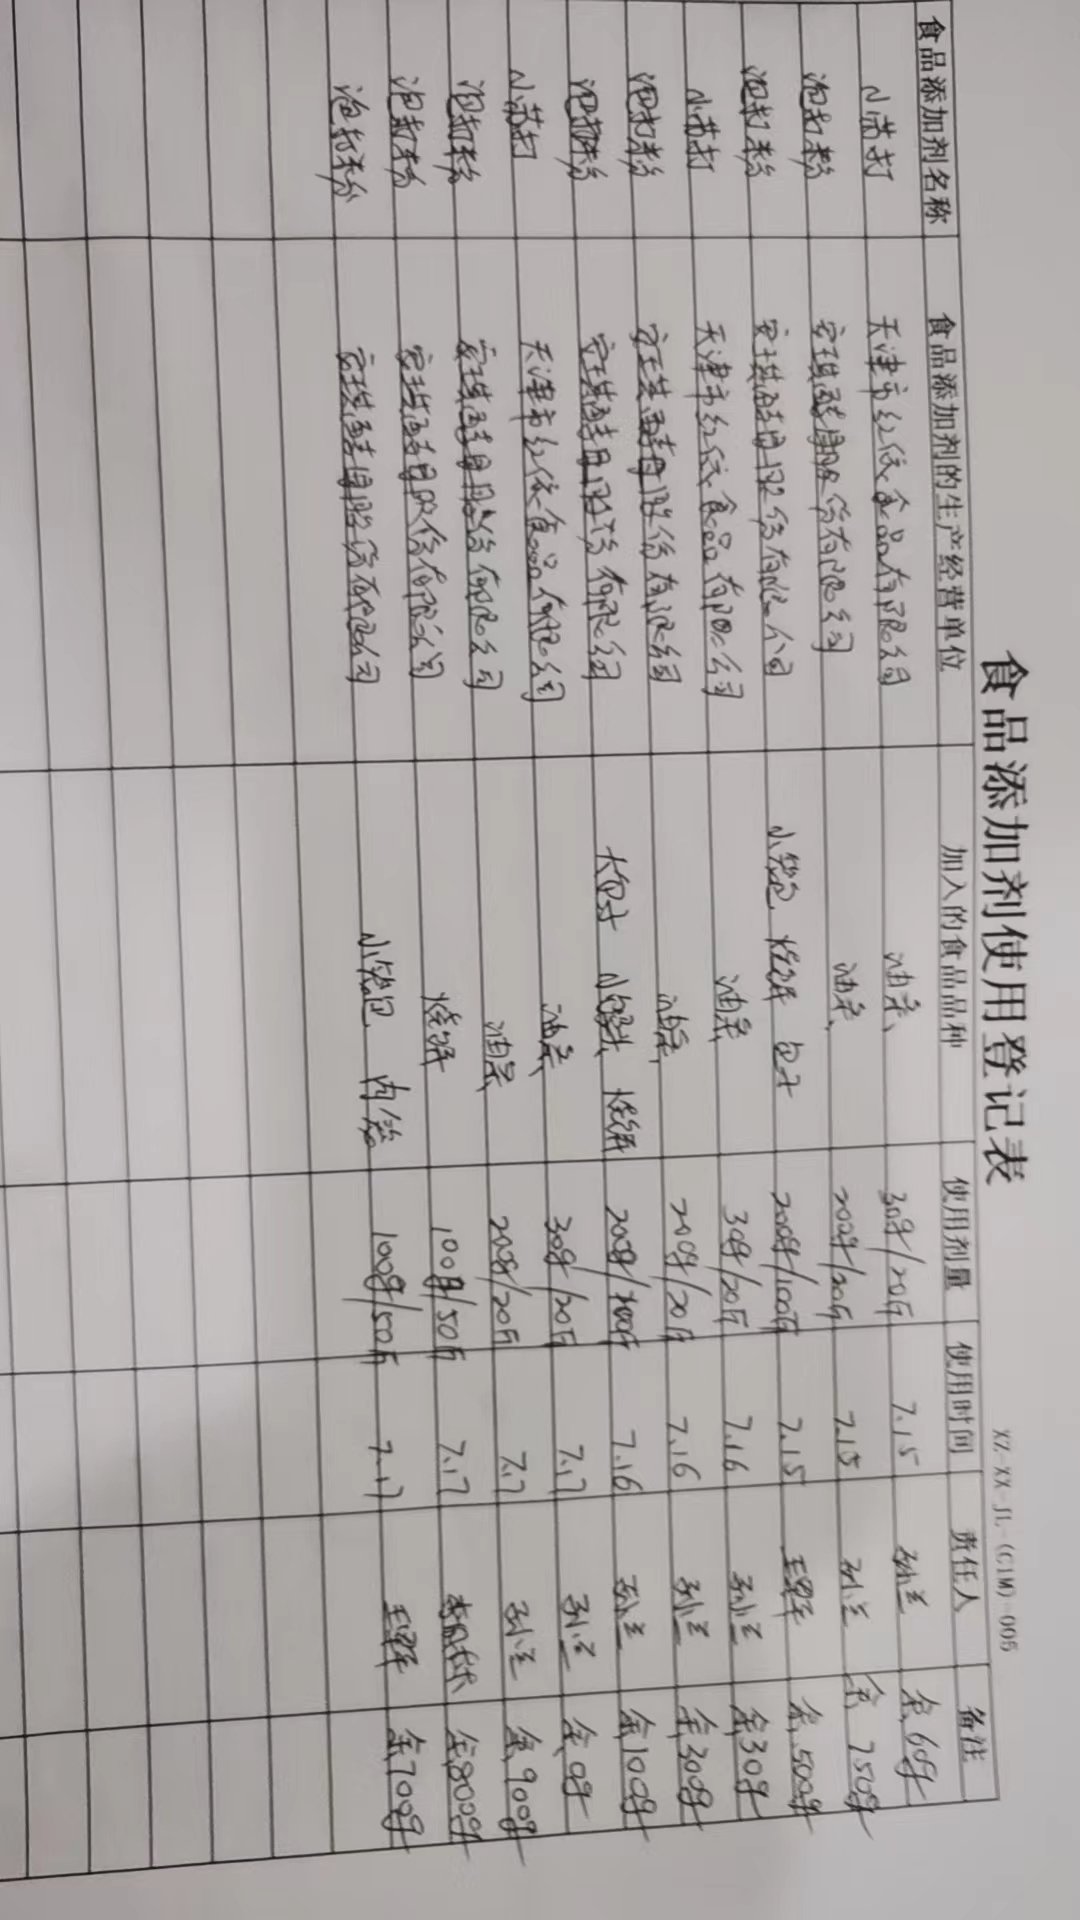 食品添加剂使用登记表
XZ-XX-JL-(CIM)-005
食品添加剂名称 食品添加剂的生产经营单位 加入的食品品种 使用剂量 使用时间 责任人 备注
小苏打 天津市红依食品有限公司 油条、 30g/20斤 7.15 孙兰 余60g
泡打粉 安琪酵母股份有限公司 油条、 200g/20斤 7.15 孙兰 余750g
泡打粉 安琪酵母股份有限公司 小笼包 烧饼 包子 200g/100斤 7.15 余500g
小苏打 天津市红依食品有限公司 油条 30g/20斤 7.16 孙兰 余30g
泡打粉 安琪酵母股份有限公司 油条, 200g/20斤 7.16 孙兰 余300g
泡打粉 安琪酵母股份有限公司 大包子 烧饼 200g/100斤 7.16 孙兰 余100g
小苏打 天津市红依食品有限公司 油条 30g/20斤 7.17 孙兰 余0g
泡打粉 安琪酵母股份有限公司 油条 200g/20斤 7.17 孙兰 余900g
泡打粉 安琪酵母股份有限公司 烧饼 100g/50斤 7.17 余800g
泡打粉 安琪酵母股份有限公司 小笼包 肉笼 100g/50斤 7.17 余700g